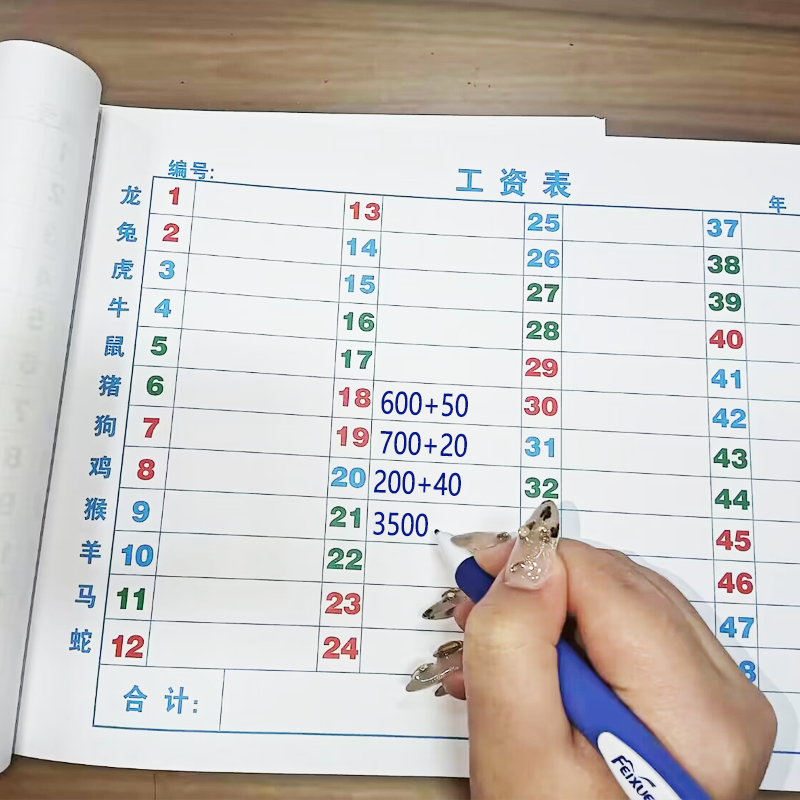 编号:
工资表
年
龙 1 13 25 37
兔 2 14 26 38
虎 3 15 27 39
牛 4 16 28 40
鼠 5 17 29 41
猪 6 18 600+50 30 42
狗 7 19 700+20 31 43
鸡 8 20 200+40 32 44
猴 9 21 3500. 45
羊 10 22 46
马 11 23 47
蛇 12 24 8
合计:
FEIXUE